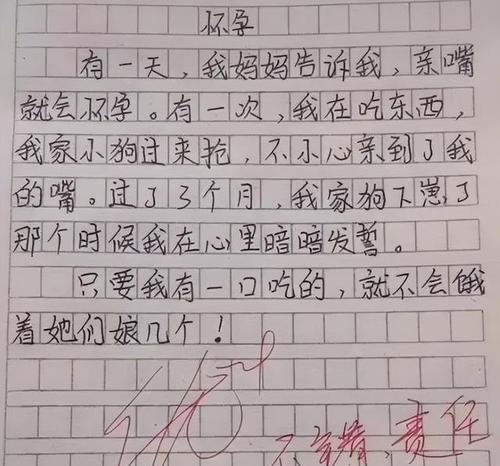 怀孕
有一天，我妈妈告诉我，亲嘴
就会怀孕。有一次，我在吃东西，
我家小狗过来抢，不小心亲到了我
的嘴。过了3个月，我家狗下崽了
那个时候我在心里暗暗发誓。
只要我有一口吃的，就不会饿
着她们娘几个！
责任